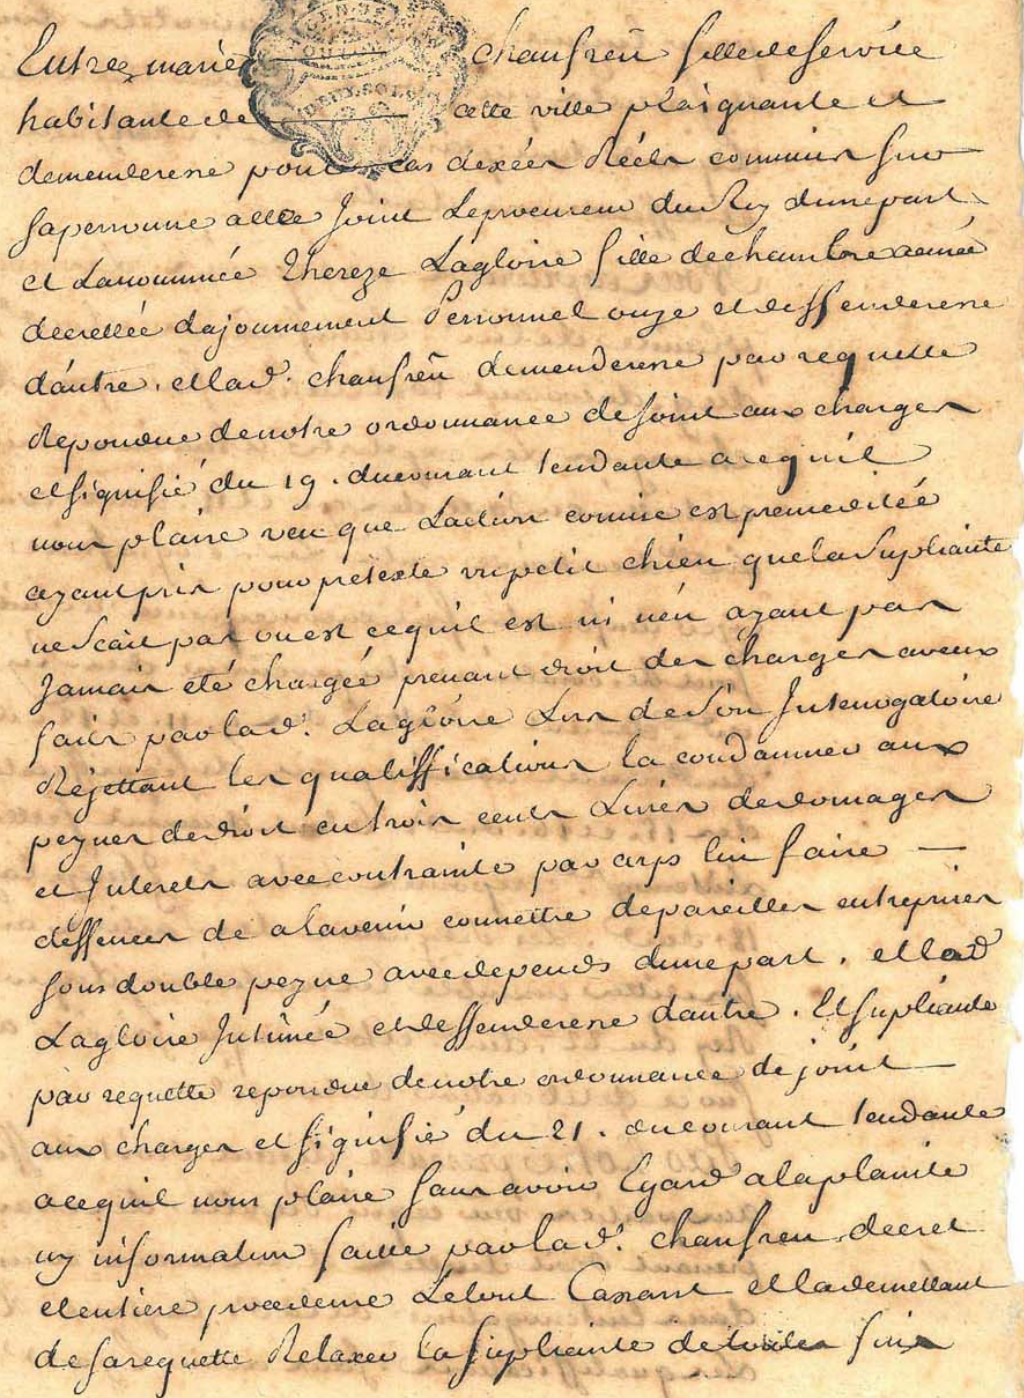 Entrez marie chaufreÿ filledeservice
habitantede cette ville plaignante et
demenderesse pour cas dexées Réels commis sur
sapersonne alle Joint Leprocureur duRoy dunepart
et Lanommée Thereze Lagloire fille dechambre
decrettée dajournement Personnel ouye et deffenderesse
dautre. et lad. chaufreÿ demenderesse par requette
Repondue denotre ordonnance dejoint aux charges
et signifié du 19. ducourant tendante acequil
nous plaise veu que Laction comise est premeditée
ayant pris pour pretexte unpetit chien quelasupliante
nescait pas ou est cequil est ni nén ayant pas
Jamais eté chargée prenant droit des charges aveux
faits par lad. Lagloire Lors deson Interrogatoire
Réjettant les qualiffications la condamner aux
peynes dedroit en trois cents Livres dedomages
et Interets avec contrainte par corps luy faire —
deffences de alavenir commettre depareilles entreprises
sous double peyne avecdepends dunepart. et lad
Lagloire Intimée et deffenderesse dautre. Et supliante
par requette repondue denotre ordonnance de joint —
aux charges et signifié du 21. ducourant tendante
acequil nous plaise sans avoir Egard alaplainte
ny information faitte par lad. chaufreÿ decret
etentiere procedeure Letout Cassant et lademettant
desarequette Relaxer la supliante detoutes fins